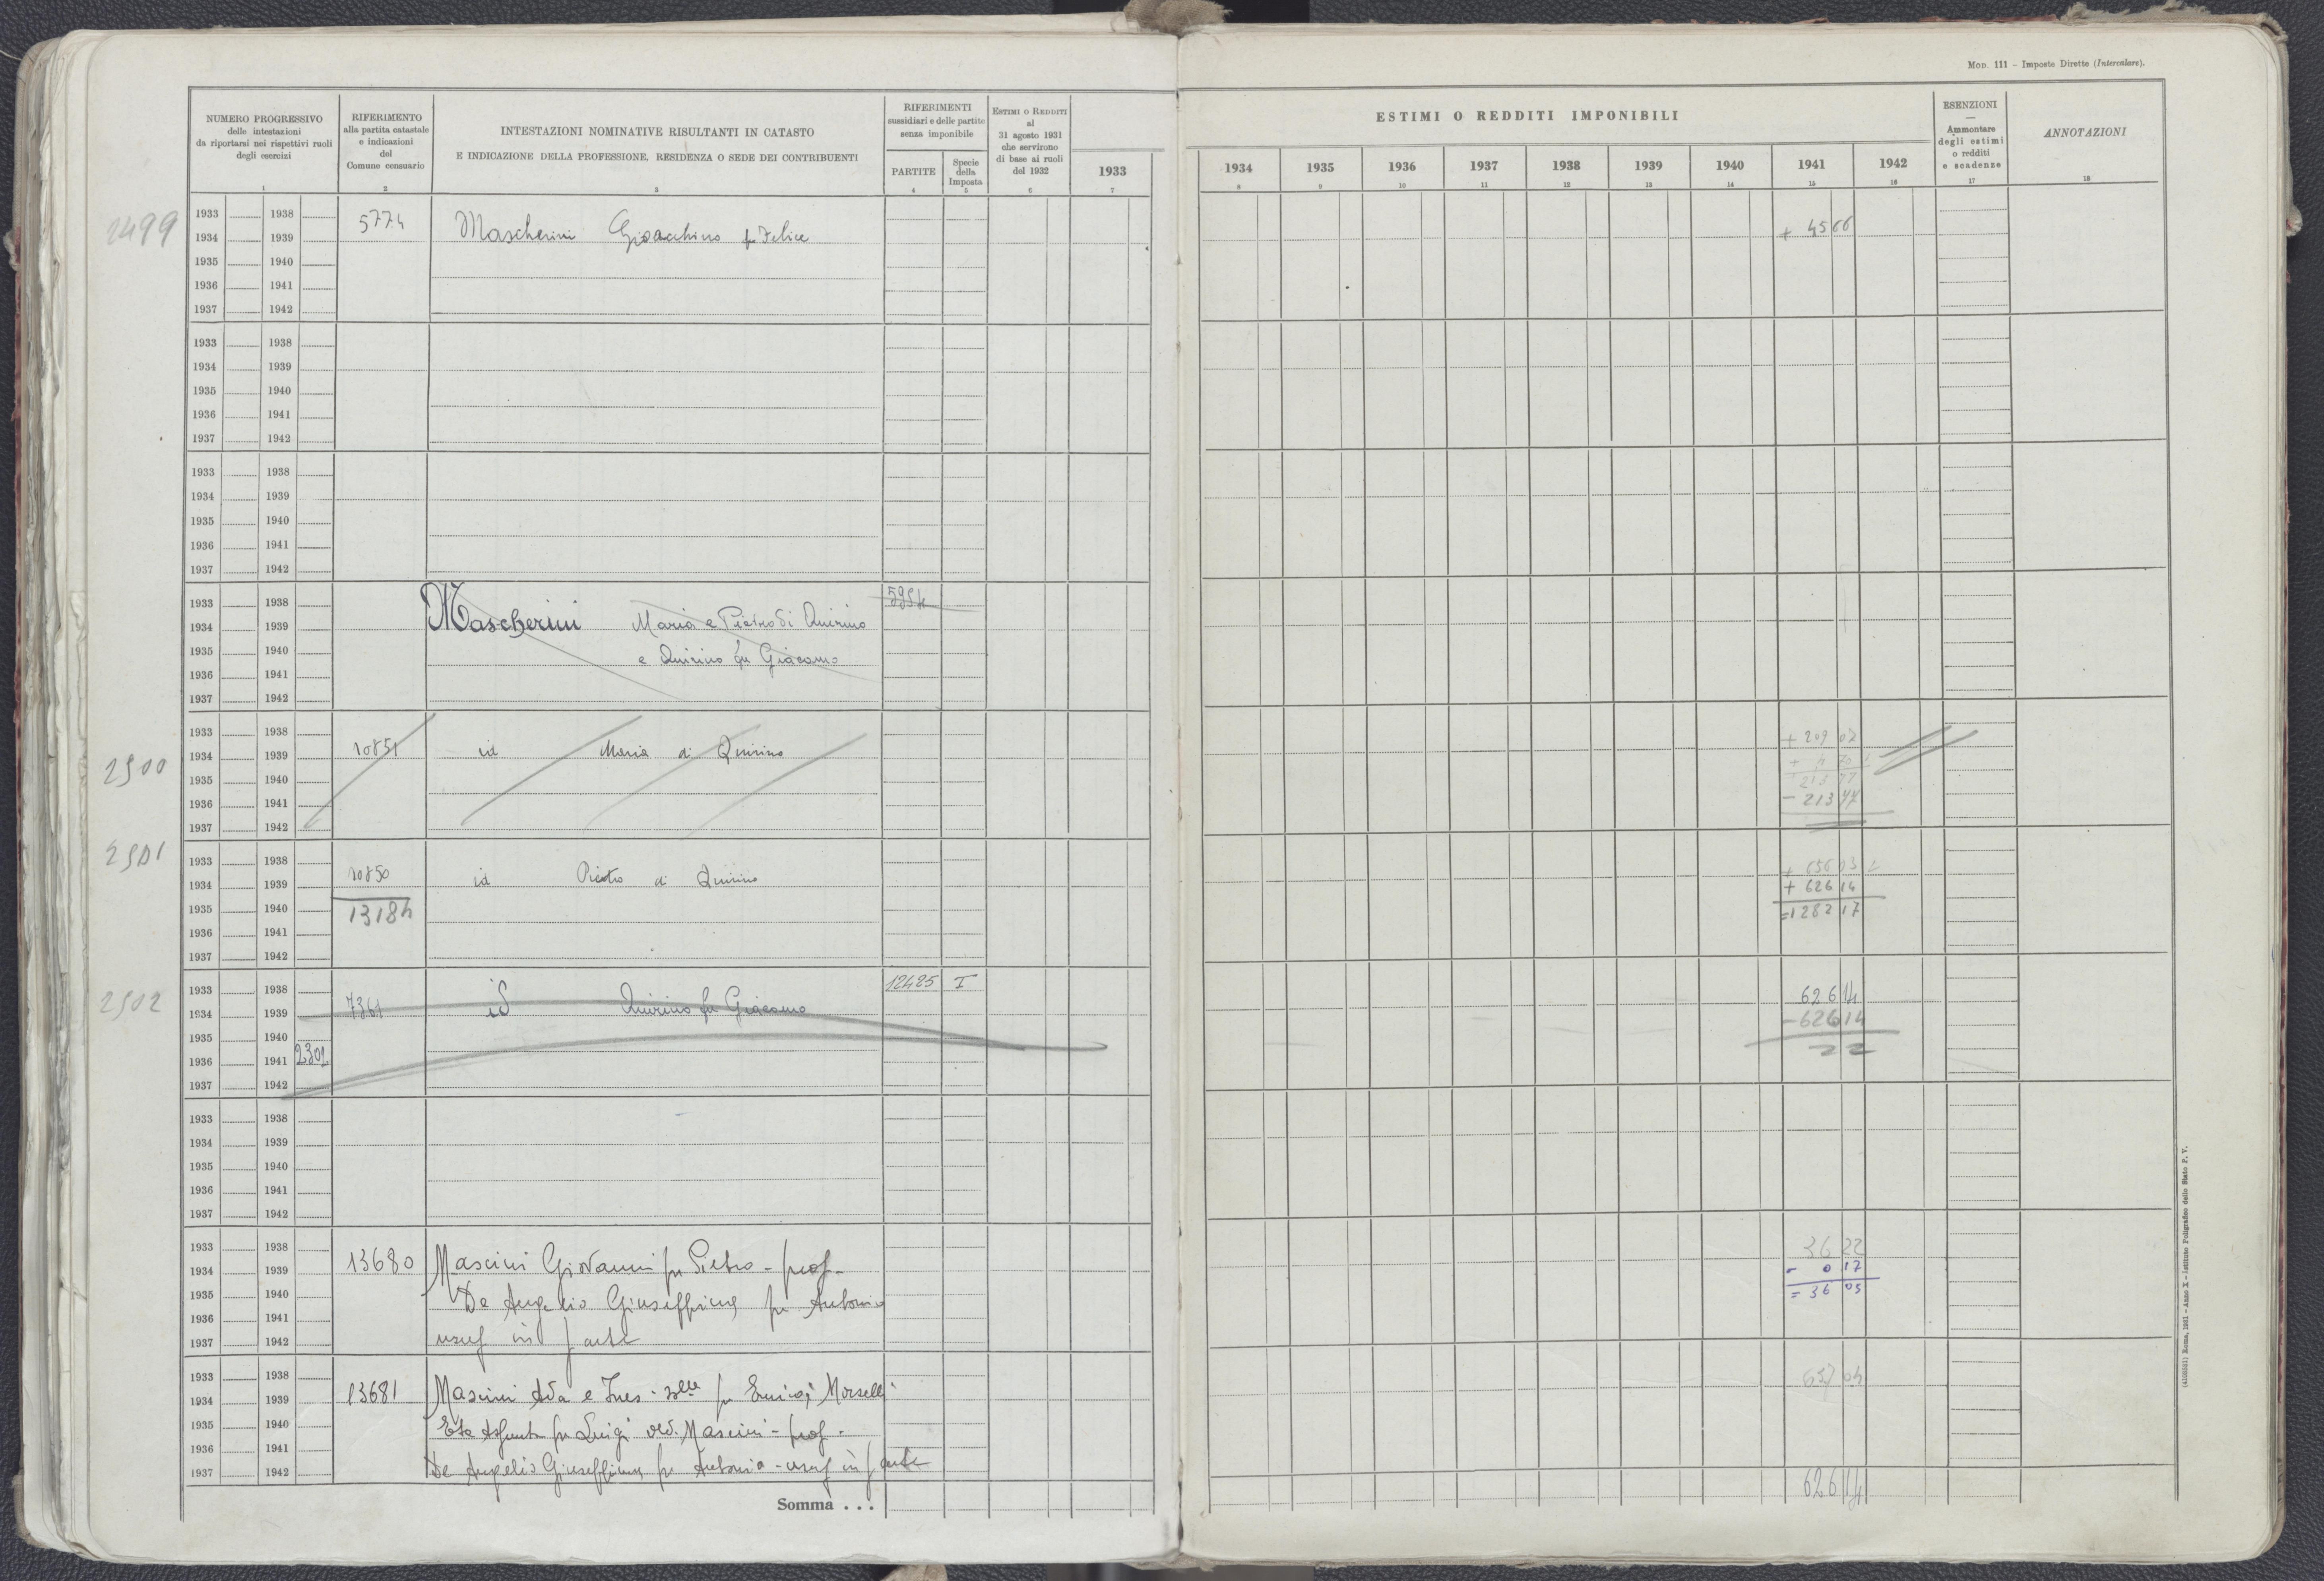 Mod. 111 - Imposte Dirette (Intercalare).
NUMERO PROGRESSIVO
delle intestazioni
da riportarsi nei rispettivi ruoli
degli esercizi
1
RIFERIMENTO
alla partita catastale
e indicazioni
del
Comune censuario
2
INTESTAZIONI NOMINATIVE RISULTANTI IN CATASTO
E INDICAZIONE DELLA PROFESSIONE, RESIDENZA O SEDE DEI CONTRIBUENTI
3
RIFERIMENTI
sussidiari e delle partite
senza imponibile
PARTITE
4
Specie
della
Imposta
5
ESTIMI O REDDITI
al
31 agosto 1931
che servirono
di base ai ruoli
del 1932
6
1933
7
ESTIMI O REDDITI IMPONIBILI
1934 1935 1936 1937 1938 1939 1940 1941 1942
8 9 10 11 12 13 14 15 16
ESENZIONI
—
Ammontare
degli estimi
o redditi
e scadenze
17
ANNOTAZIONI
18
2499
1933 1938 5774
Mascherini Gioacchino fu Felice
+ 45 66
1934 1939
1935 1940
1936 1941
1937 1942
1933 1938
1934 1939
1935 1940
1936 1941
1937 1942
1933 1938
1934 1939
1935 1940
1936 1941
1937 1942
1933 1938
1934 1939 Mascherini Maria e Pietro di Quirino
1935 1940 e Quirino fu Giacomo
1936 1941
1937 1942
2500
1933 1938
+ 209 07
1934 1939 10851 id Maria di Quirino
1935 1940
213 77
1936 1941
- 213 77
1937 1942
2501
1933 1938
1934 1939 10850 id Pietro di Quirino
+ 656 03
+ 626 14
1935 1940 13184
= 1282 17
1936 1941
1937 1942
2502
1933 1938 12425 I
1934 1939 7361 id Quirino fu Giacomo
626 14
1935 1940
- 626 14
1936 1941 2302
1937 1942
1933 1938
1934 1939
1935 1940
1936 1941
1937 1942
1933 1938
36 22
1934 1939 13680 Mascini Giovanni fu Pietro - prop -
- 0 17
1935 1940 De Angelis Giuseppina fu Antonio
= 36 05
1936 1941
1937 1942 usuf in parte
1933 1938
1934 1939 13681 Mascini Ada e Ines - slle fu Enrico; Morselli
1935 1940 fu Luigi ved. Mascini - prop -
1936 1941
1937 1942 De Angelis Giuseppina fu Antonio - usuf in parte
Somma . . .
626 14
(4103531) Roma, 1931 - Anno X - Istituto Poligrafico dello Stato P. V.